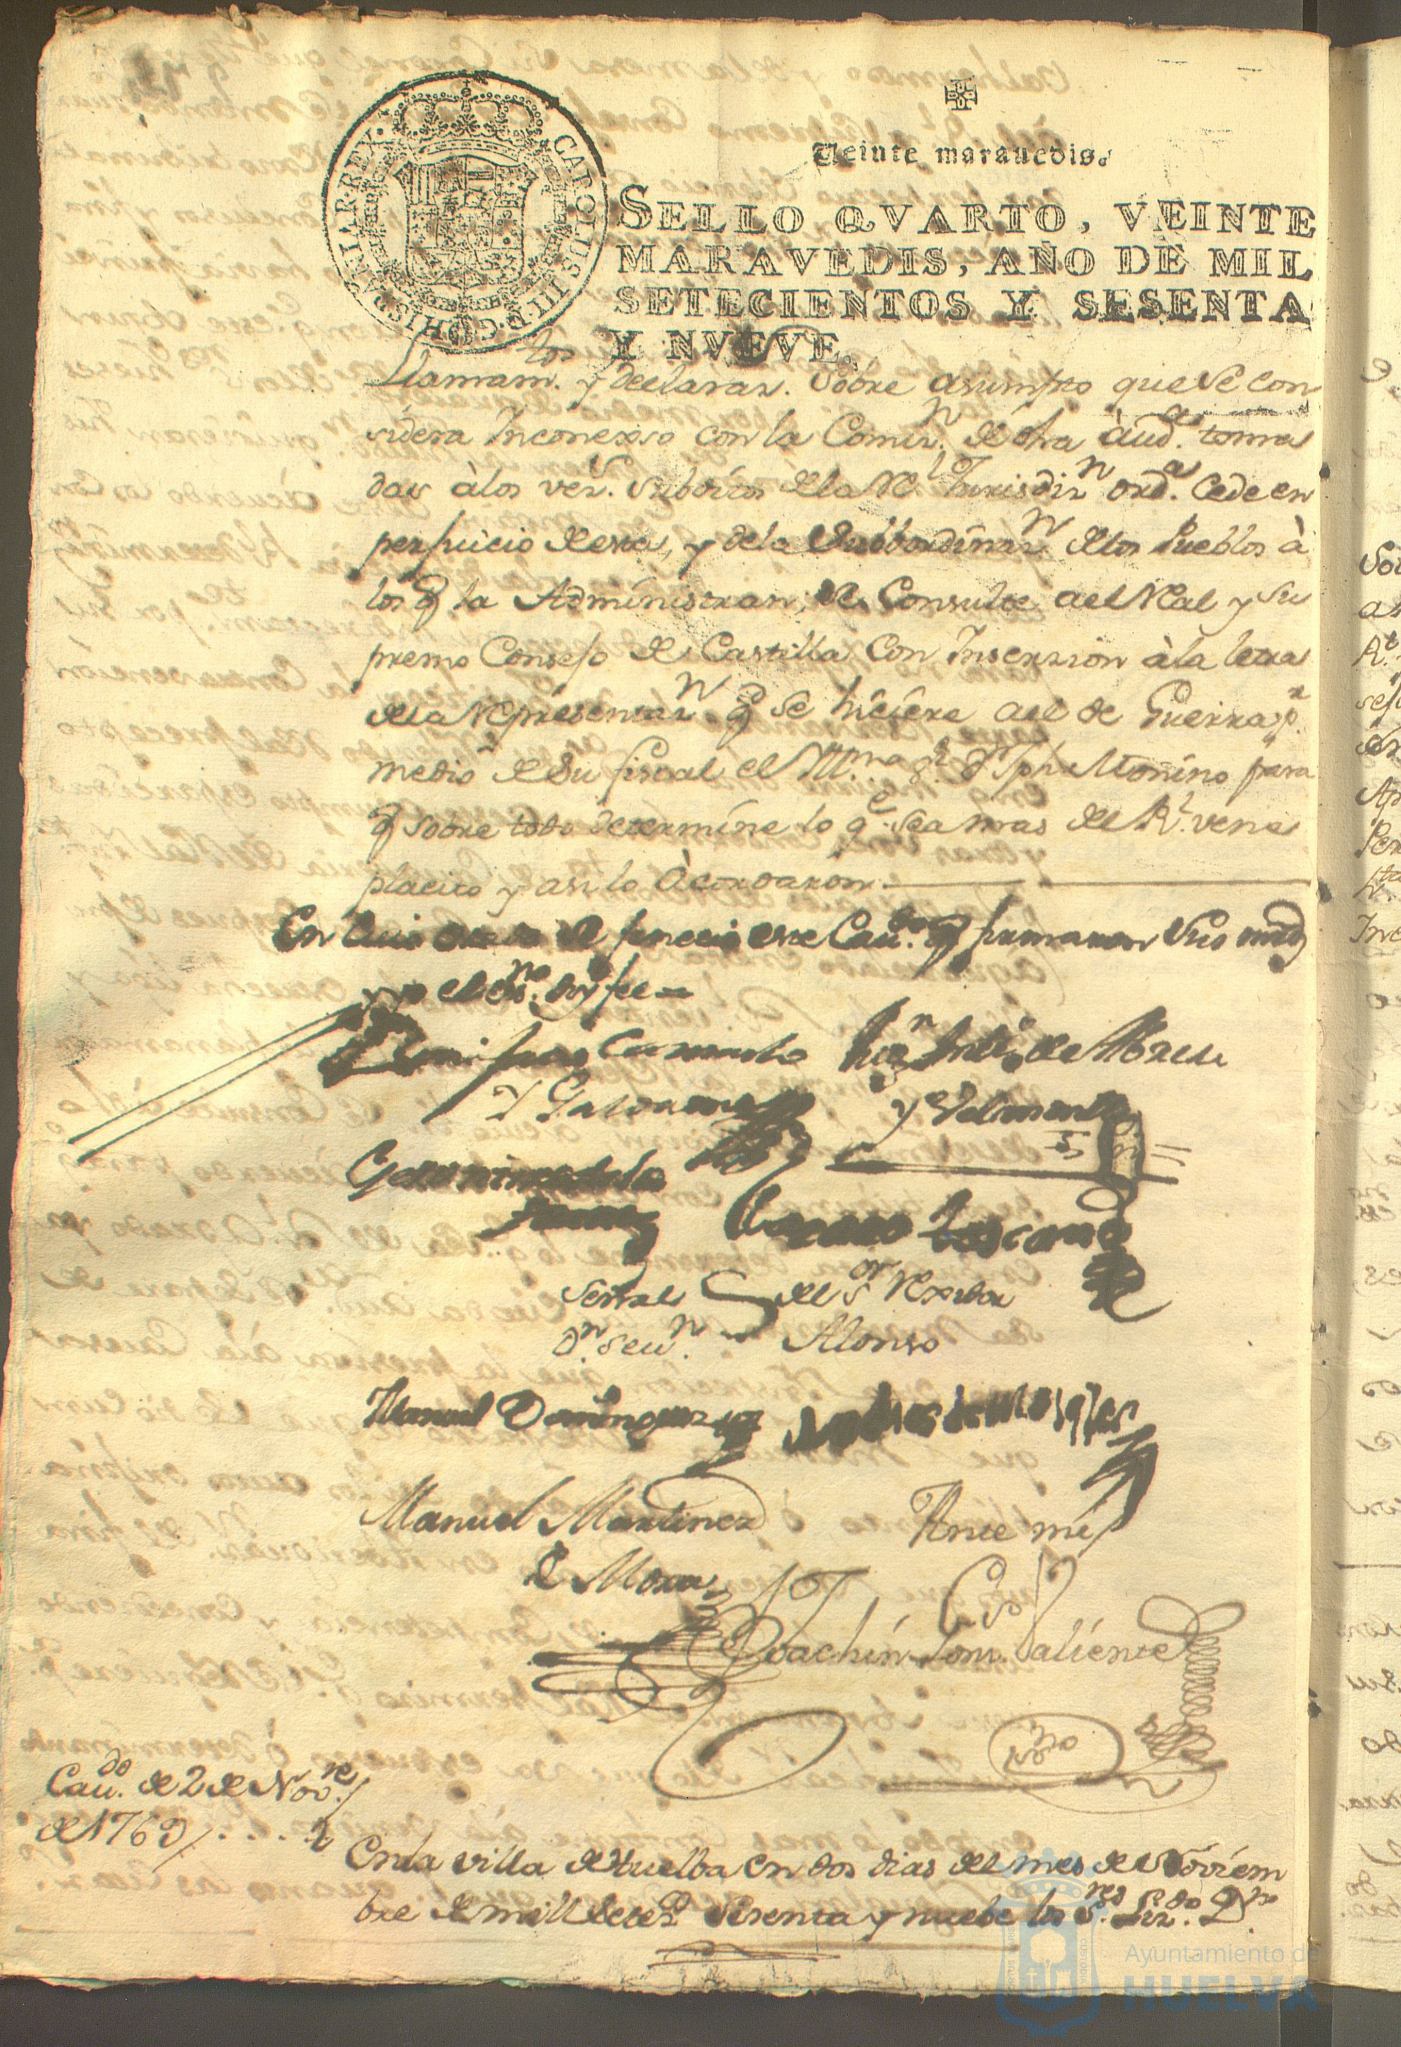 CAROLUS III D G HISPANIAR REX
Veinte marauedis.
SELLO QVARTO, VEINTE
MARAVEDIS, AÑO DE MIL
SETECIENTOS Y SESENTA
Y NVEVE.
Llamam.tos y declaraz. Sobre asumpto que se con
sidera Inconexso con la Comiz.n de dha àud.a toma
das àlos vez.s Subditos de la Rl. Jurisdiz.n ord.a Cede en
perjuicio de esta, y de la Subbordinaz.n de los Pueblos à
los q la Administran; se Consulte al Real y Su
premo Consejo de Castilla Con Inserzion àla letra
de la Representaz.n q se hiciere al de Guerra p.r
medio de su fiscal el Ill.mo s.r d.n Jph Moñino para
q sobre todo determine lo q.e sea mas de Rl. vene
placito y asi lo àcordaron
En Cuio estado se fenecio este Cau.do q firmaron Sus mrds
y yo el es.no doy fee
Camacho Juan de Abreu
y Galdamez
Geronimo de la
Toscano
Señal del S.or Rexidor
D.n Seu.n Alonso
Manuel Dominguez
Manuel Martinez
de Mora
Ante mi
Joachin Gonz. Valiente
Cau.do de 2 de Nov.re
de 1769
En la villa de Huelba en dos dias del mes de Noviem
bre de mill Setez.s Sesenta y nuebe los S.res Liz.do D.n
Ayuntamiento de
HUELVA